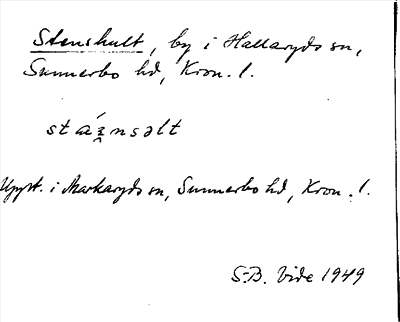 Stenshult, by i Hallaryds sn,
Sunnerbo hd, Kron. l.
Uppt. i Markaryds sn, Sunnerbo hd, Kron. l.
S.-B. Vide 1949